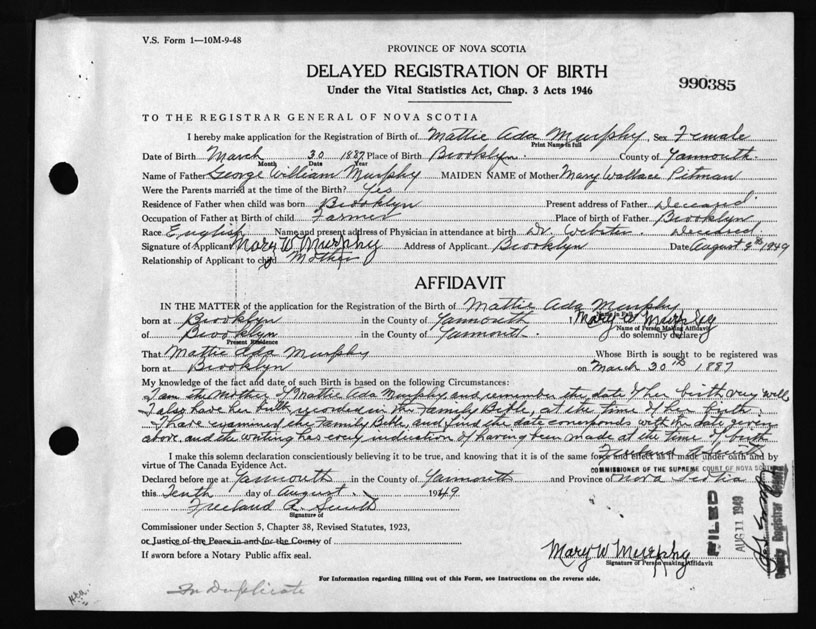 V.S. Form 1—10M-9-48
PROVINCE OF NOVA SCOTIA
DELAYED REGISTRATION OF BIRTH
990385
Under the Vital Statistics Act, Chap. 3 Acts 1946
TO THE REGISTRAR GENERAL OF NOVA SCOTIA
I hereby make application for the Registration of Birth of Mattie Ada Murphy, Sex Female
Print Name in full
Date of Birth March 30 1887 Place of Birth Brooklyn. County of Yarmouth.
Month Date Year
Name of Father George William Murphy MAIDEN NAME of Mother Mary Wallace Pitman
Were the Parents married at the time of the Birth? Yes
Residence of Father when child was born Brooklyn Present address of Father Deceased
Occupation of Father at Birth of child Farmer Place of birth of Father Brooklyn
Race English Name and present address of Physician in attendance at birth Dr. Webster. Deceased.
Signature of Applicant Mary W Murphy Address of Applicant Brooklyn Date August 9th 1949
Relationship of Applicant to child Mother
AFFIDAVIT
IN THE MATTER of the application for the Registration of the Birth of Mattie Ada Murphy
Name in Full
born at Brooklyn in the County of Yarmouth, I Mary W Murphy
Name of Person Making Affidavit
of Brooklyn in the County of Yarmouth. do solemnly declare
Present Residence
That Mattie Ada Murphy Whose Birth is sought to be registered was
born at Brooklyn on March 30th 1887
My knowledge of the fact and date of such Birth is based on the following Circumstances:
I am the Mother of Mattie Ada Murphy and remember the date of her birth very well
I also have her birth recorded in the Family Bible, at the time of her birth.
I have examined the Family Bible and find the date corresponds with the date given
above and the writing has every indication of having been made at the time of birth
Freeland A Smith
I make this solemn declaration conscientiously believing it to be true, and knowing that it is of the same force and effect as if made under oath and by
virtue of The Canada Evidence Act.
COMMISSIONER OF THE SUPREME COURT OF NOVA SCOTIA
Declared before me at Yarmouth in the County of Yarmouth and Province of Nova Scotia
this Tenth day of August. 1949
Freeland A Smith
Signature of
FILED
AUG 11 1949
Deputy Registrar General
Commissioner under Section 5, Chapter 38, Revised Statutes, 1923,
or Justice of the Peace in and for the County of
If sworn before a Notary Public affix seal.
Mary W Murphy
Signature of Person making Affidavit
For Information regarding filling out of this Form, see Instructions on the reverse side.
In Duplicate